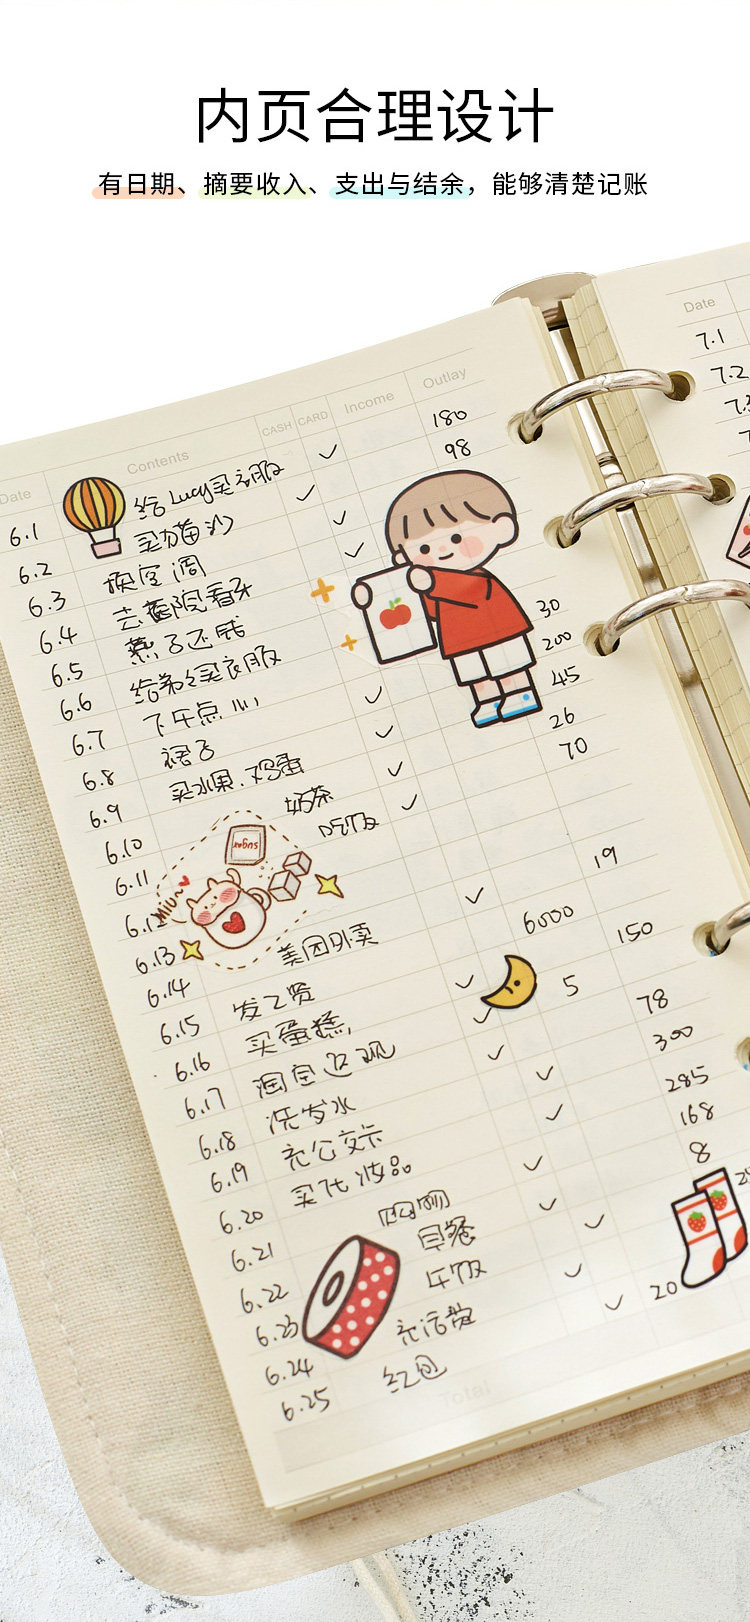 内页合理设计
有日期、摘要收入、支出与结余，能够清楚记账
Date Contents CASH CARD Income Outlay
6.1 给Lucy买衣服 180
6.2 买猫沙 98
6.3 换空调
6.4 去医院看牙
6.5 燕子还钱
6.6 给弟弟买衣服
6.7 下午点心 30
6.8 裙子 200
6.9 买水果.鸡蛋 45
6.10 奶茶 26
6.11 吃饭 70
6.12
6.13
6.14 美团外卖 19
6.15 发工资 6000
6.16 买蛋糕 150
6.17 淘宝返现 5
6.18 洗发水 78
6.19 充公交卡 300
6.20 买化妆品 285
6.21 购物 168
6.22 早餐 8
6.23 午饭
6.24 充话费
6.25 红包 20
Total
sugar
MIU~
Date
7.1
7.2